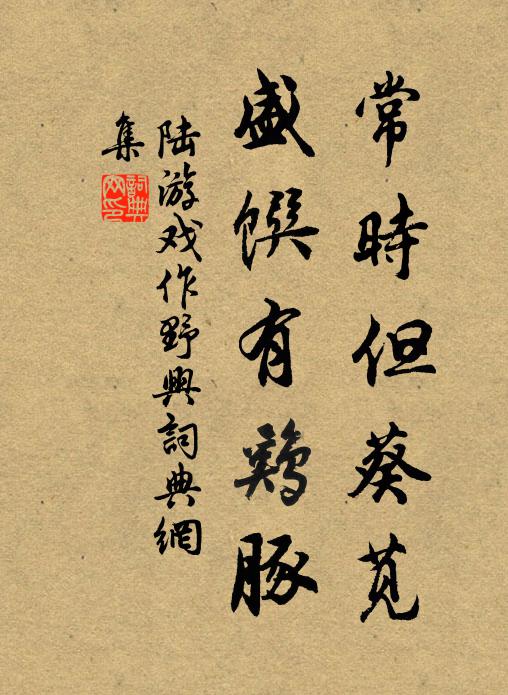 常時但葵莧
盛饌有鷄豚
陆游戏作野興詞典網
集
詞典網印